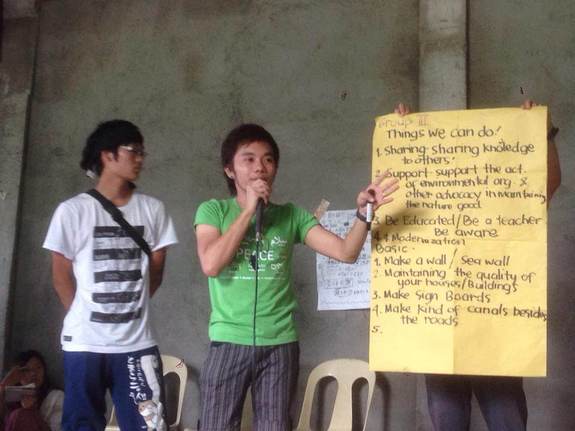 PEACE
Group III
Things we can do!
1. Sharing-sharing knowledge
to others.
2. Support-support the act.
or environmental org. &
other advocacy in maintaining
the nature good
3. Be Educated/Be a teacher
Be aware
4. Modernization
Basic.
1. Make a wall / Sea wall
2. Maintaining the quality of
your houses/Buildings
3. Make Sign Boards
4. Make kind of canals besides
the roads
5.